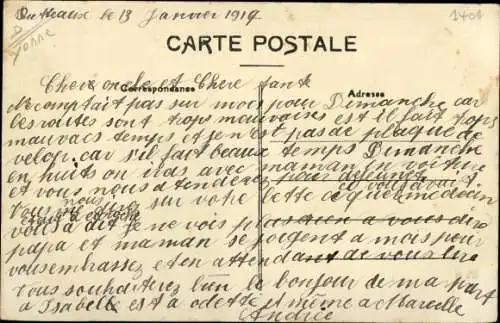 Puiseaux le 13 Janvier 1919
1401
Yonne
CARTE POSTALE
Correspondance
Adresse
Chere oncle et Chere tante
Ne comptait pas sur mois pour Dimanche car
les routes sont trops mauvaises est il fait trops
mauvais temps et j'en est pas de plaque de
velop. car s'il fait beaux temps Dimanche
en huits on iras avec maman en voiture
et vous nous attenderez pour dejeunez
Vous nous sur votre lettre ce que medecin
et vous avait
vous a dit je ne vois pas rien a vous dire
papa et maman se joigent a mois pour
vous embrassez et en attendant de vous lire
tous souhaiterez bien le bonjour de ma part
a Isabelle est a odette et même a Marcelle
Andrée